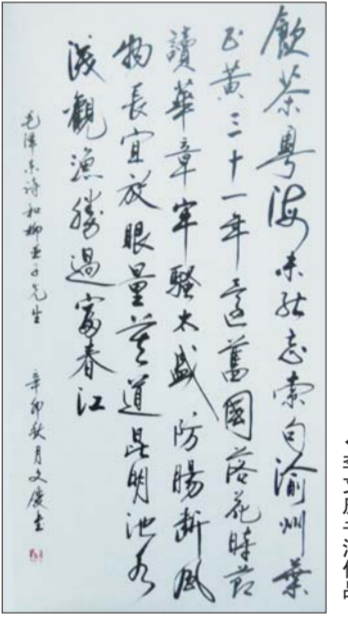 飲茶粵海未能忘索句渝州葉
正黃三十一年還舊國落花時節
讀華章牢騷太盛防腸斷風
物長宜放眼量莫道昆明池水
淺觀漁勝過富春江
毛澤东诗和柳亚子先生 辛卯秋月文慶书